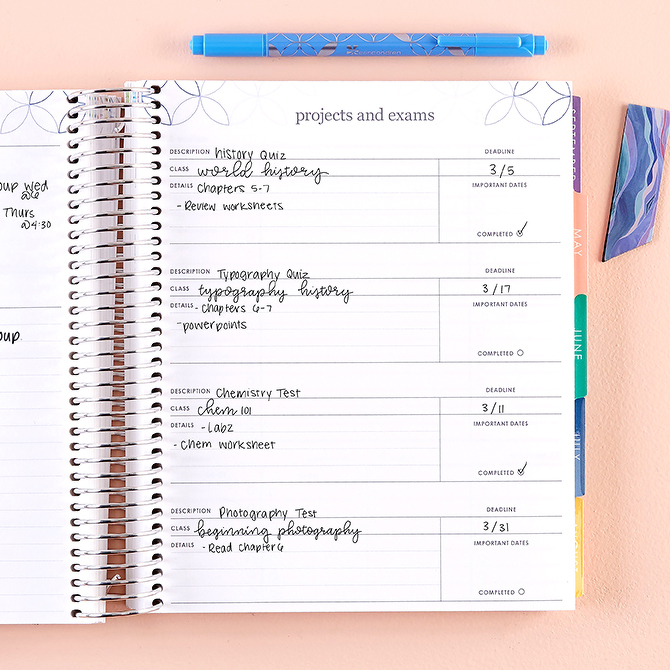 projects and exams
DESCRIPTION history Quiz DEADLINE
CLASS world history 3/5
DETAILS Chapters 5-7 IMPORTANT DATES
- Review worksheets
COMPLETED
DESCRIPTION Typography Quiz DEADLINE
CLASS typography history 3/17
DETAILS - Chapters 6-7 IMPORTANT DATES
- powerpoints
COMPLETED
DESCRIPTION Chemistry Test DEADLINE
CLASS chem 101 3/11
DETAILS - Lab2 IMPORTANT DATES
- Chem worksheet
COMPLETED
DESCRIPTION Photography Test DEADLINE
CLASS beginning photography 3/31
DETAILS - Read chapter 6 IMPORTANT DATES
COMPLETED
wed
@6
Thurs
@4:30
SEPTEMBER
MAY
JUNE
JULY